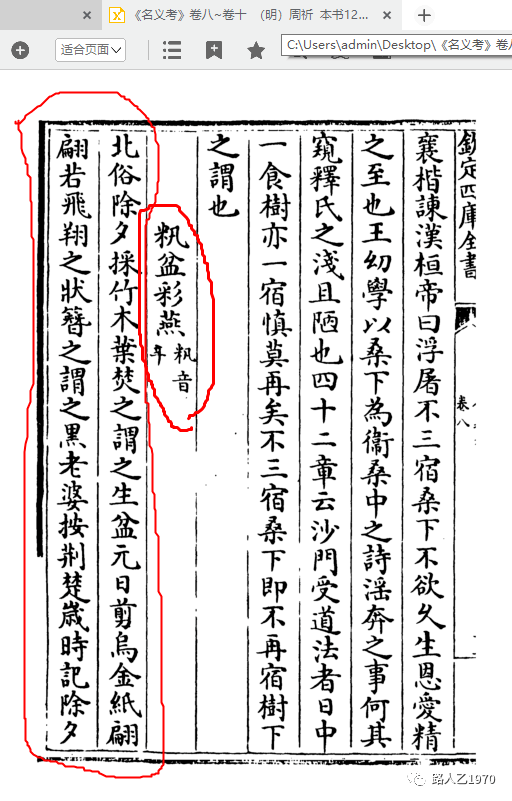 《名义考》卷八~卷十 （明）周祈 本书12...
适合页面
C:\Users\admin\Desktop\《名义考》卷八
欽定四庫全書
卷八
襄楷諫漢桓帝曰浮屠不三宿桑下不欲久生恩愛精
之至也王幼學以桑下為衞桑中之詩淫奔之事何其
窺釋氏之淺且陋也四十二章云沙門受道法者日中
一食樹亦一宿慎莫再矣不三宿桑下即不再宿樹下
之謂也
籸盆彩燕 籸音
北俗除夕採竹木葉焚之謂之生盆元日剪烏金紙翩
翩若飛翔之狀簪之謂之黑老婆按荆楚歲時記除夕
路人乙1970